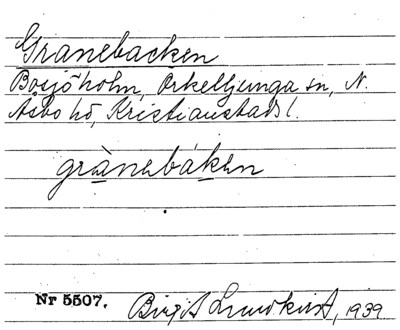 Granebacken
Bosjöholm, Örkelljunga sn, N.
Åsbo hd, Kristianstads l.
grànebáken
Nr 5507. Birgit Lundkvist, 1939